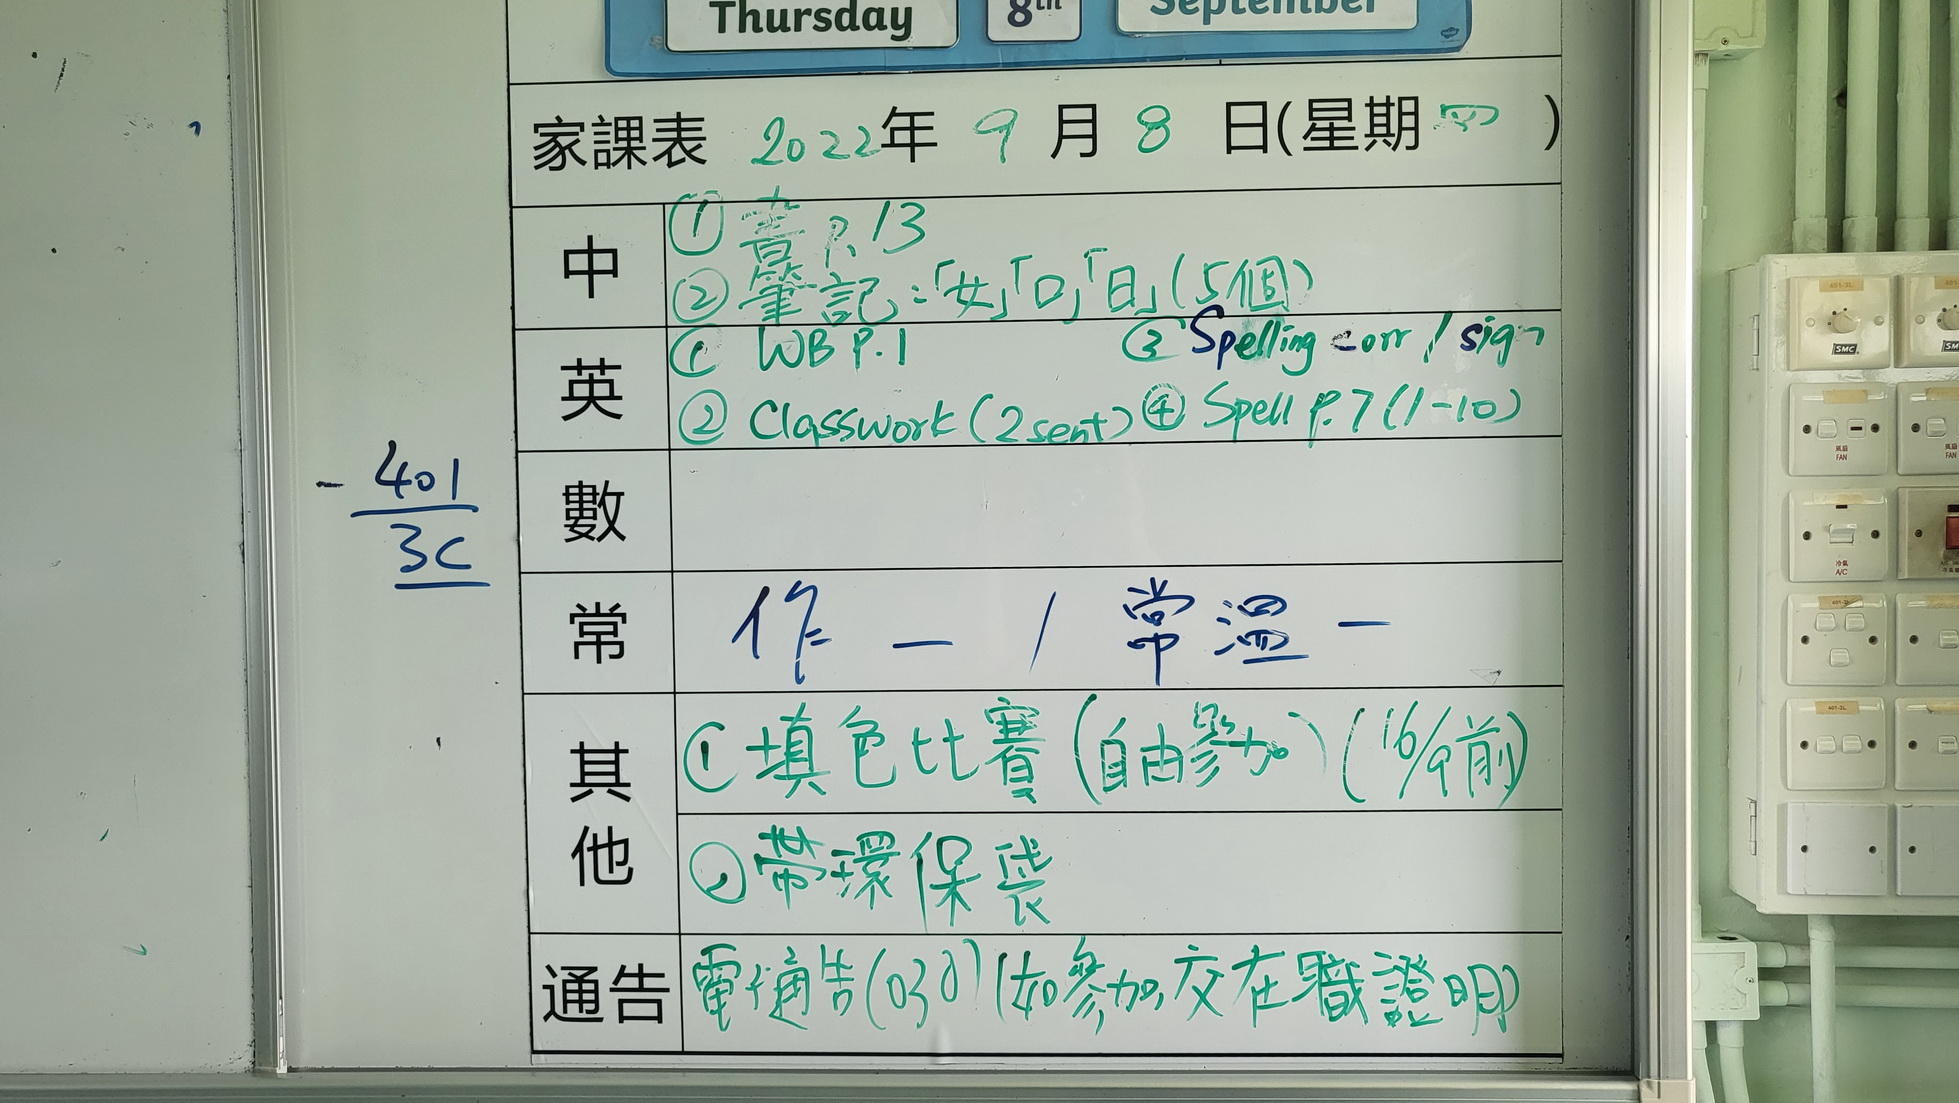 Thursday 8th September
家課表 2022年 9 月 8 日(星期四 )
中
① 書 P.13
② 筆記:「女」「口」「日」(5個)
英
① WB P.1 ③ Spelling corr / sign
② Classwork (2 sent) ④ Spell P.7 (1-10)
數
- 401
3C
常
作 一 / 常溫 一
其他
① 填色比賽 (自由參加) (16/9前)
② 帶環保袋
通告
電子通告(030) (如參加,交在職證明)
SMC
風扇
FAN
風扇
FAN
冷氣
A/C